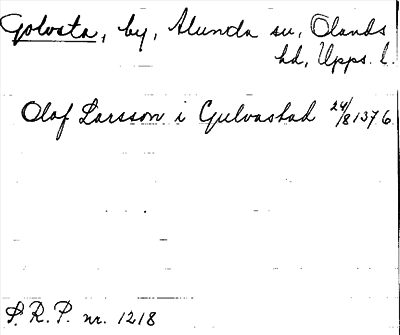 Golvsta, by, Alunda sn, Olands
hd, Upps. l.
Olaf Larsson i Gulvastad 24/8 1376.
S. R. P. nr. 1218